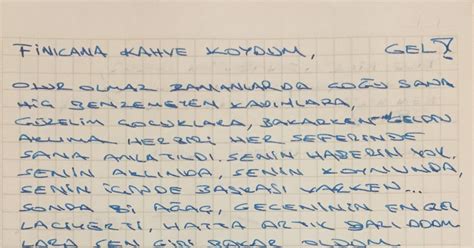 FİNCANA KAHVE KOYDUM, GEL!
OLUR OLMAZ ZAMANLARDA ÇOĞU SANA
HİÇ BENZEMEYEN KADINLARA,
GÜZELİM ÇOCUKLARA, BAKARKEN GELDİN
AKLIMA HERBİRİ HER SEFERİNDE
SANA ANLATILDI. SENİN HABERİN YOK.
SENİN AKLINDA, SENİN KOYNUNDA,
SENİN İÇİNDE BAŞKASI VARKEN...
SONRA Bİ AĞAÇ, GECENİNİN EN
LACİVERTİ, HATTA ARTIK
LARA SEN GİBİ BAKAR OLDUM